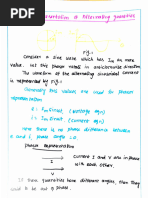 Representation of Alternating Quantities
fig :-
Consider a sine wave which has Im as max
value. Let the phasor rotate in anticlockwise direction.
The waveform of the alternating sinusoidal current
is represented by fig :-
Generally this values are used for phasor
representation
there is no phase difference between
e and i, phase angle =0
Phasor representation
I
V
Current I and V are in phase
with each other.
If these quantities have different angles, then they
said to be out of phase.